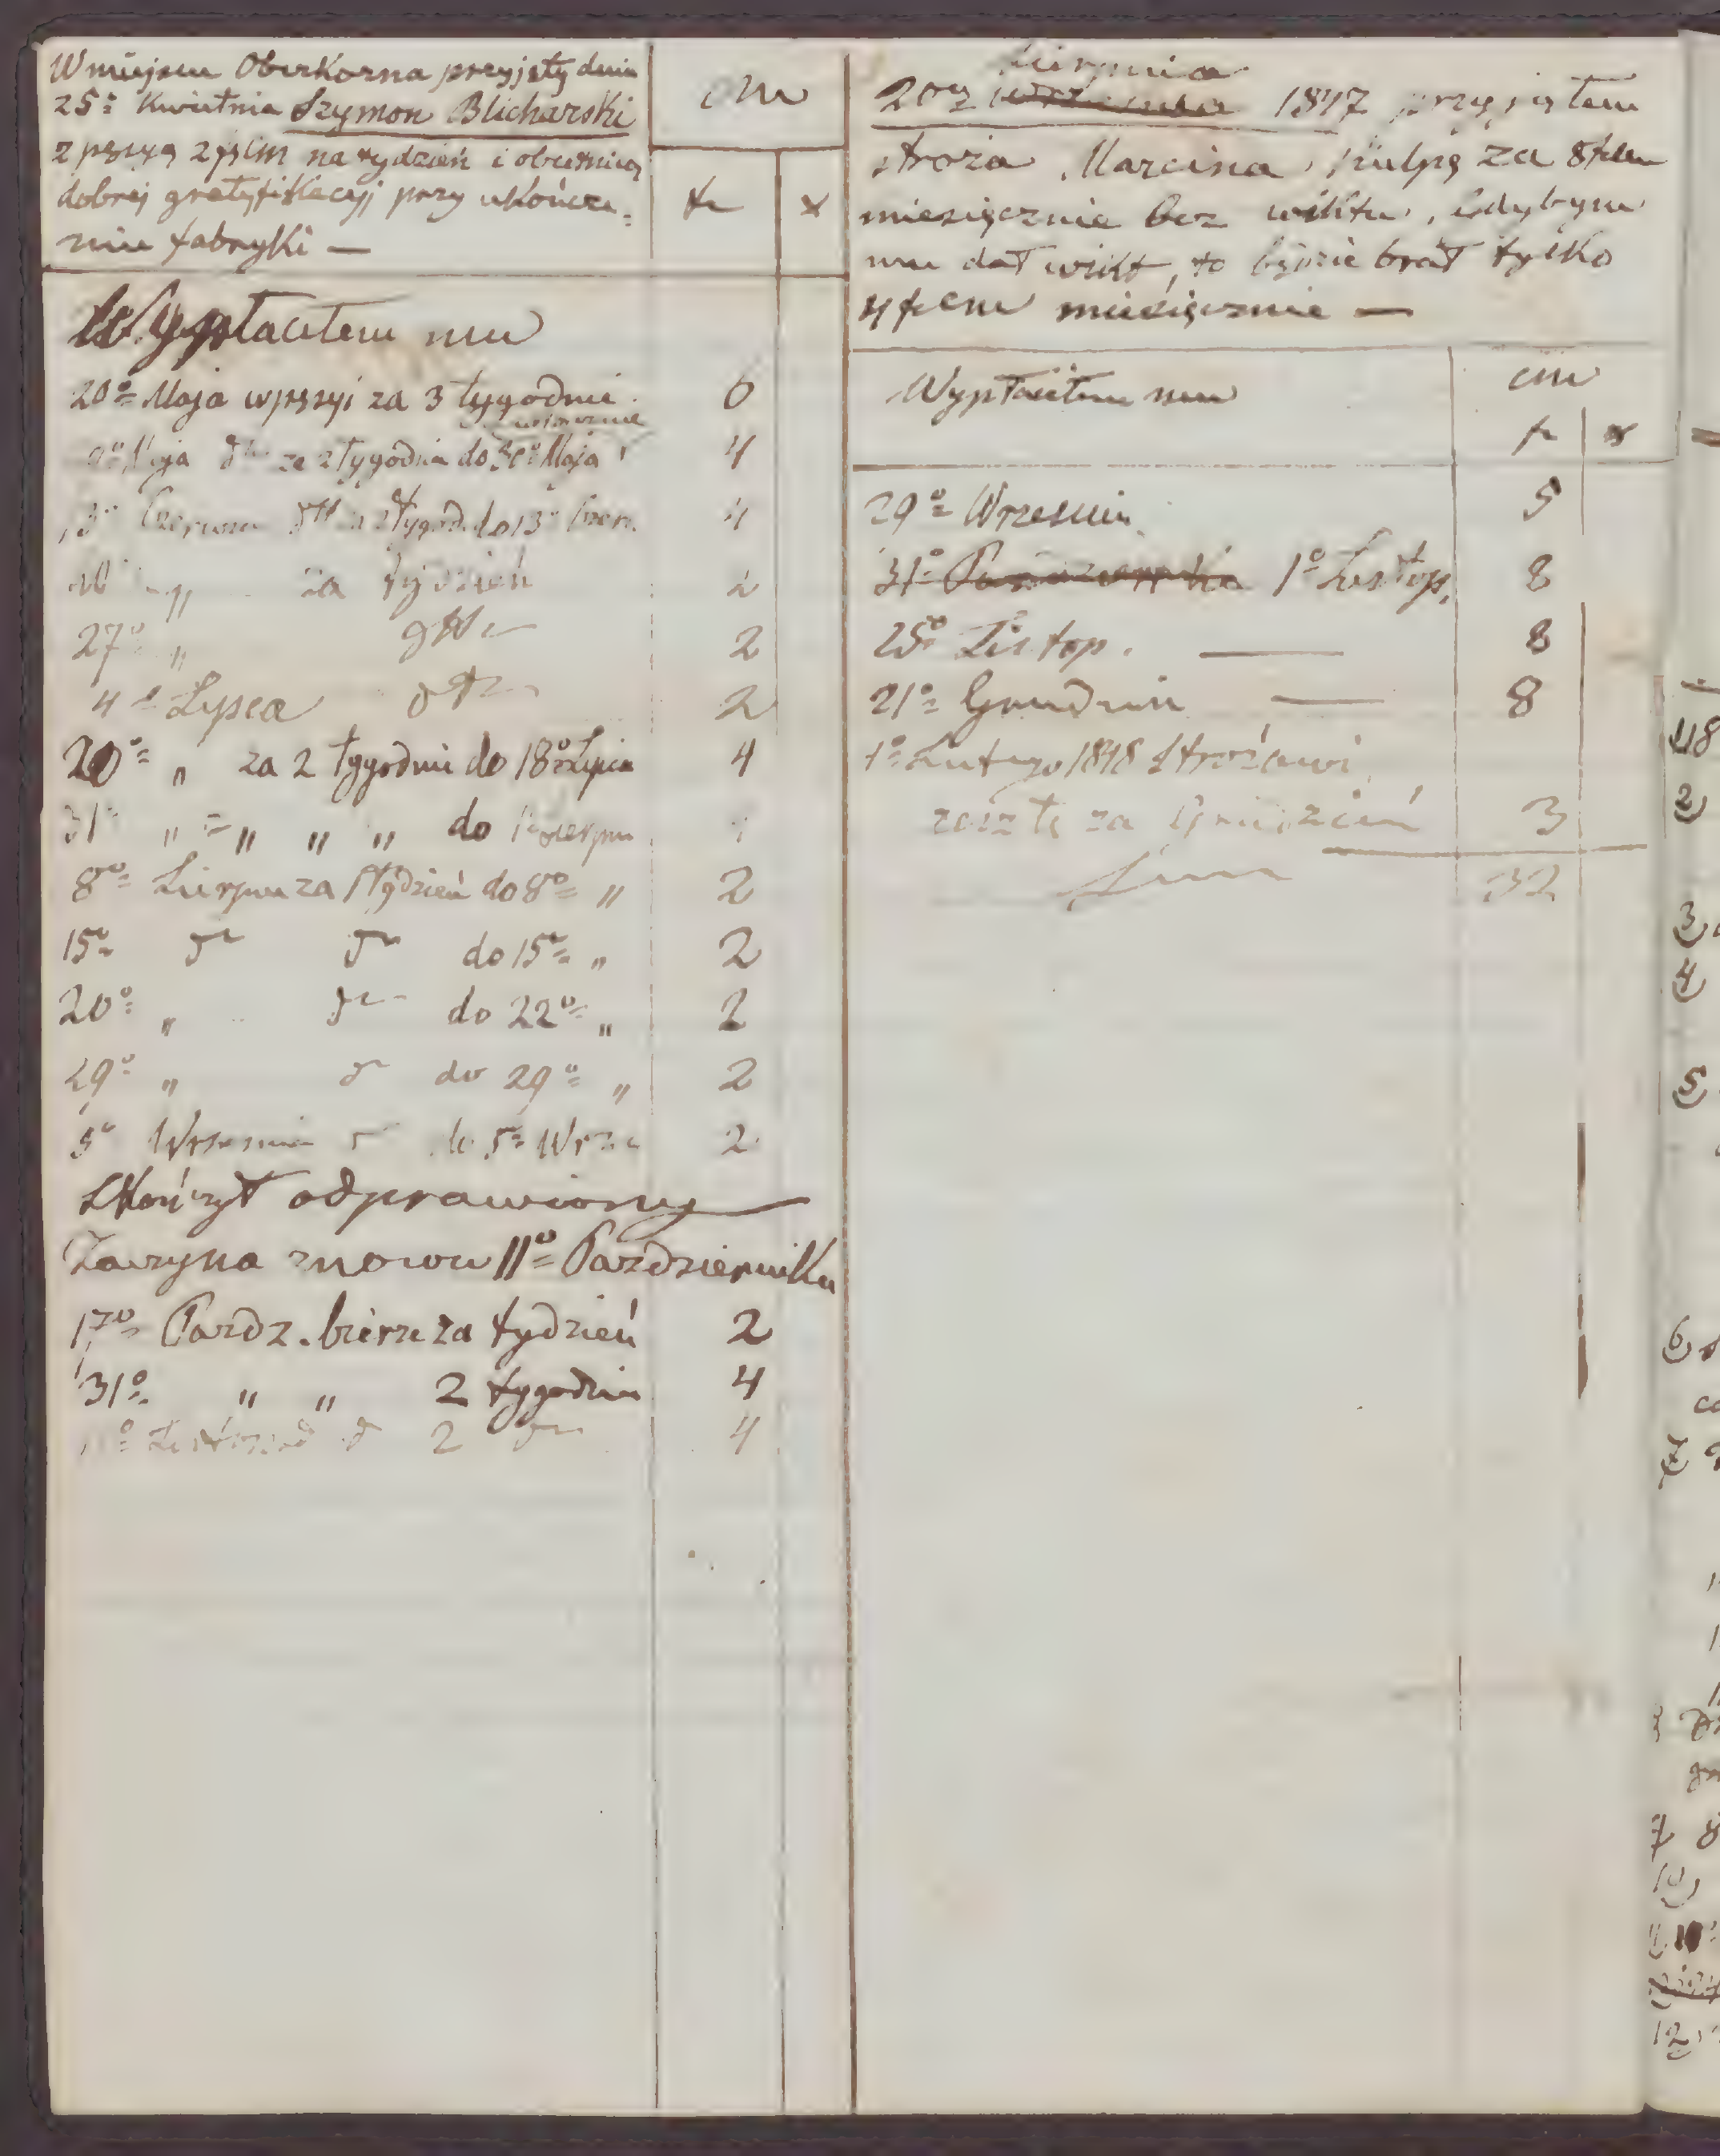 W miejscu Oberkorna przyjęty dnia
25º Kwietnia Szymon Blicharski
z pęsyą 2 frcm na tydzień i obietnicą
dobrej gratyfikacyj przy ukończe=
niu fabryki —
CM
fr x
Wypłaciłem mu
20º Maja w pęsyi za 3 tygodnie 6
włącznie
Maja dtto za 2 tygodnie do 30º Maja 4
13º Czerwca dtto za 2 tygod. do 13º Czerw. 4
20º " za tydzień 2
27º " dtto 2
4º Lipca dtto 2
20º " za 2 tygodni do 18º Lipca 4
31º " = " " " do 1º Sierpn
8º Sierpn za 1 tydzień do 8º " 2
15º dto dto do 15º " 2
20º " dto do 22º " 2
29º " dto do 29º " 2
5º Wrzesnia dto do 5º Wrze 2
Skończył odprawiony
Zaczyna znowu 11º Pazdziernika
17º Pazdz. bierze za tydzień 2
31º " " 2 tygodnie 4
Listopad d 2 dto 4
Sierpnia
20º Września 1847 przyjąłem
stroża Marcina za 8 frcm
miesięcznie bez wiktu, Gdybym
mu dał wikt, to będzie brał tylko
4 frcm miesięcznie —
Wypłaciłem mu cm
fr x
29º Wrzesnia 5
31º Pazdziernika 1º Listop. 8
25º Listop. — 8
21º Grudnia — 8
1º Lutego 1848 Strożowi
resztę za Grudzień 3
Sum 32